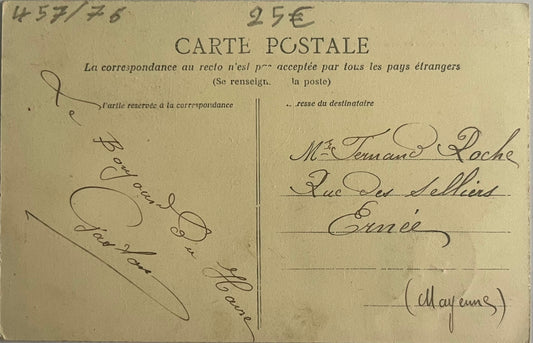 457/76
25€
CARTE POSTALE
La correspondance au recto n'est pas acceptée par tous les pays étrangers
(Se renseign. la poste)
Partie réservée à la correspondance
resse du destinataire
Le Bonjour
Du Havre
Gaston
Mr Fernand Roche
Rue des Selliers
Ernée
(Mayenne)